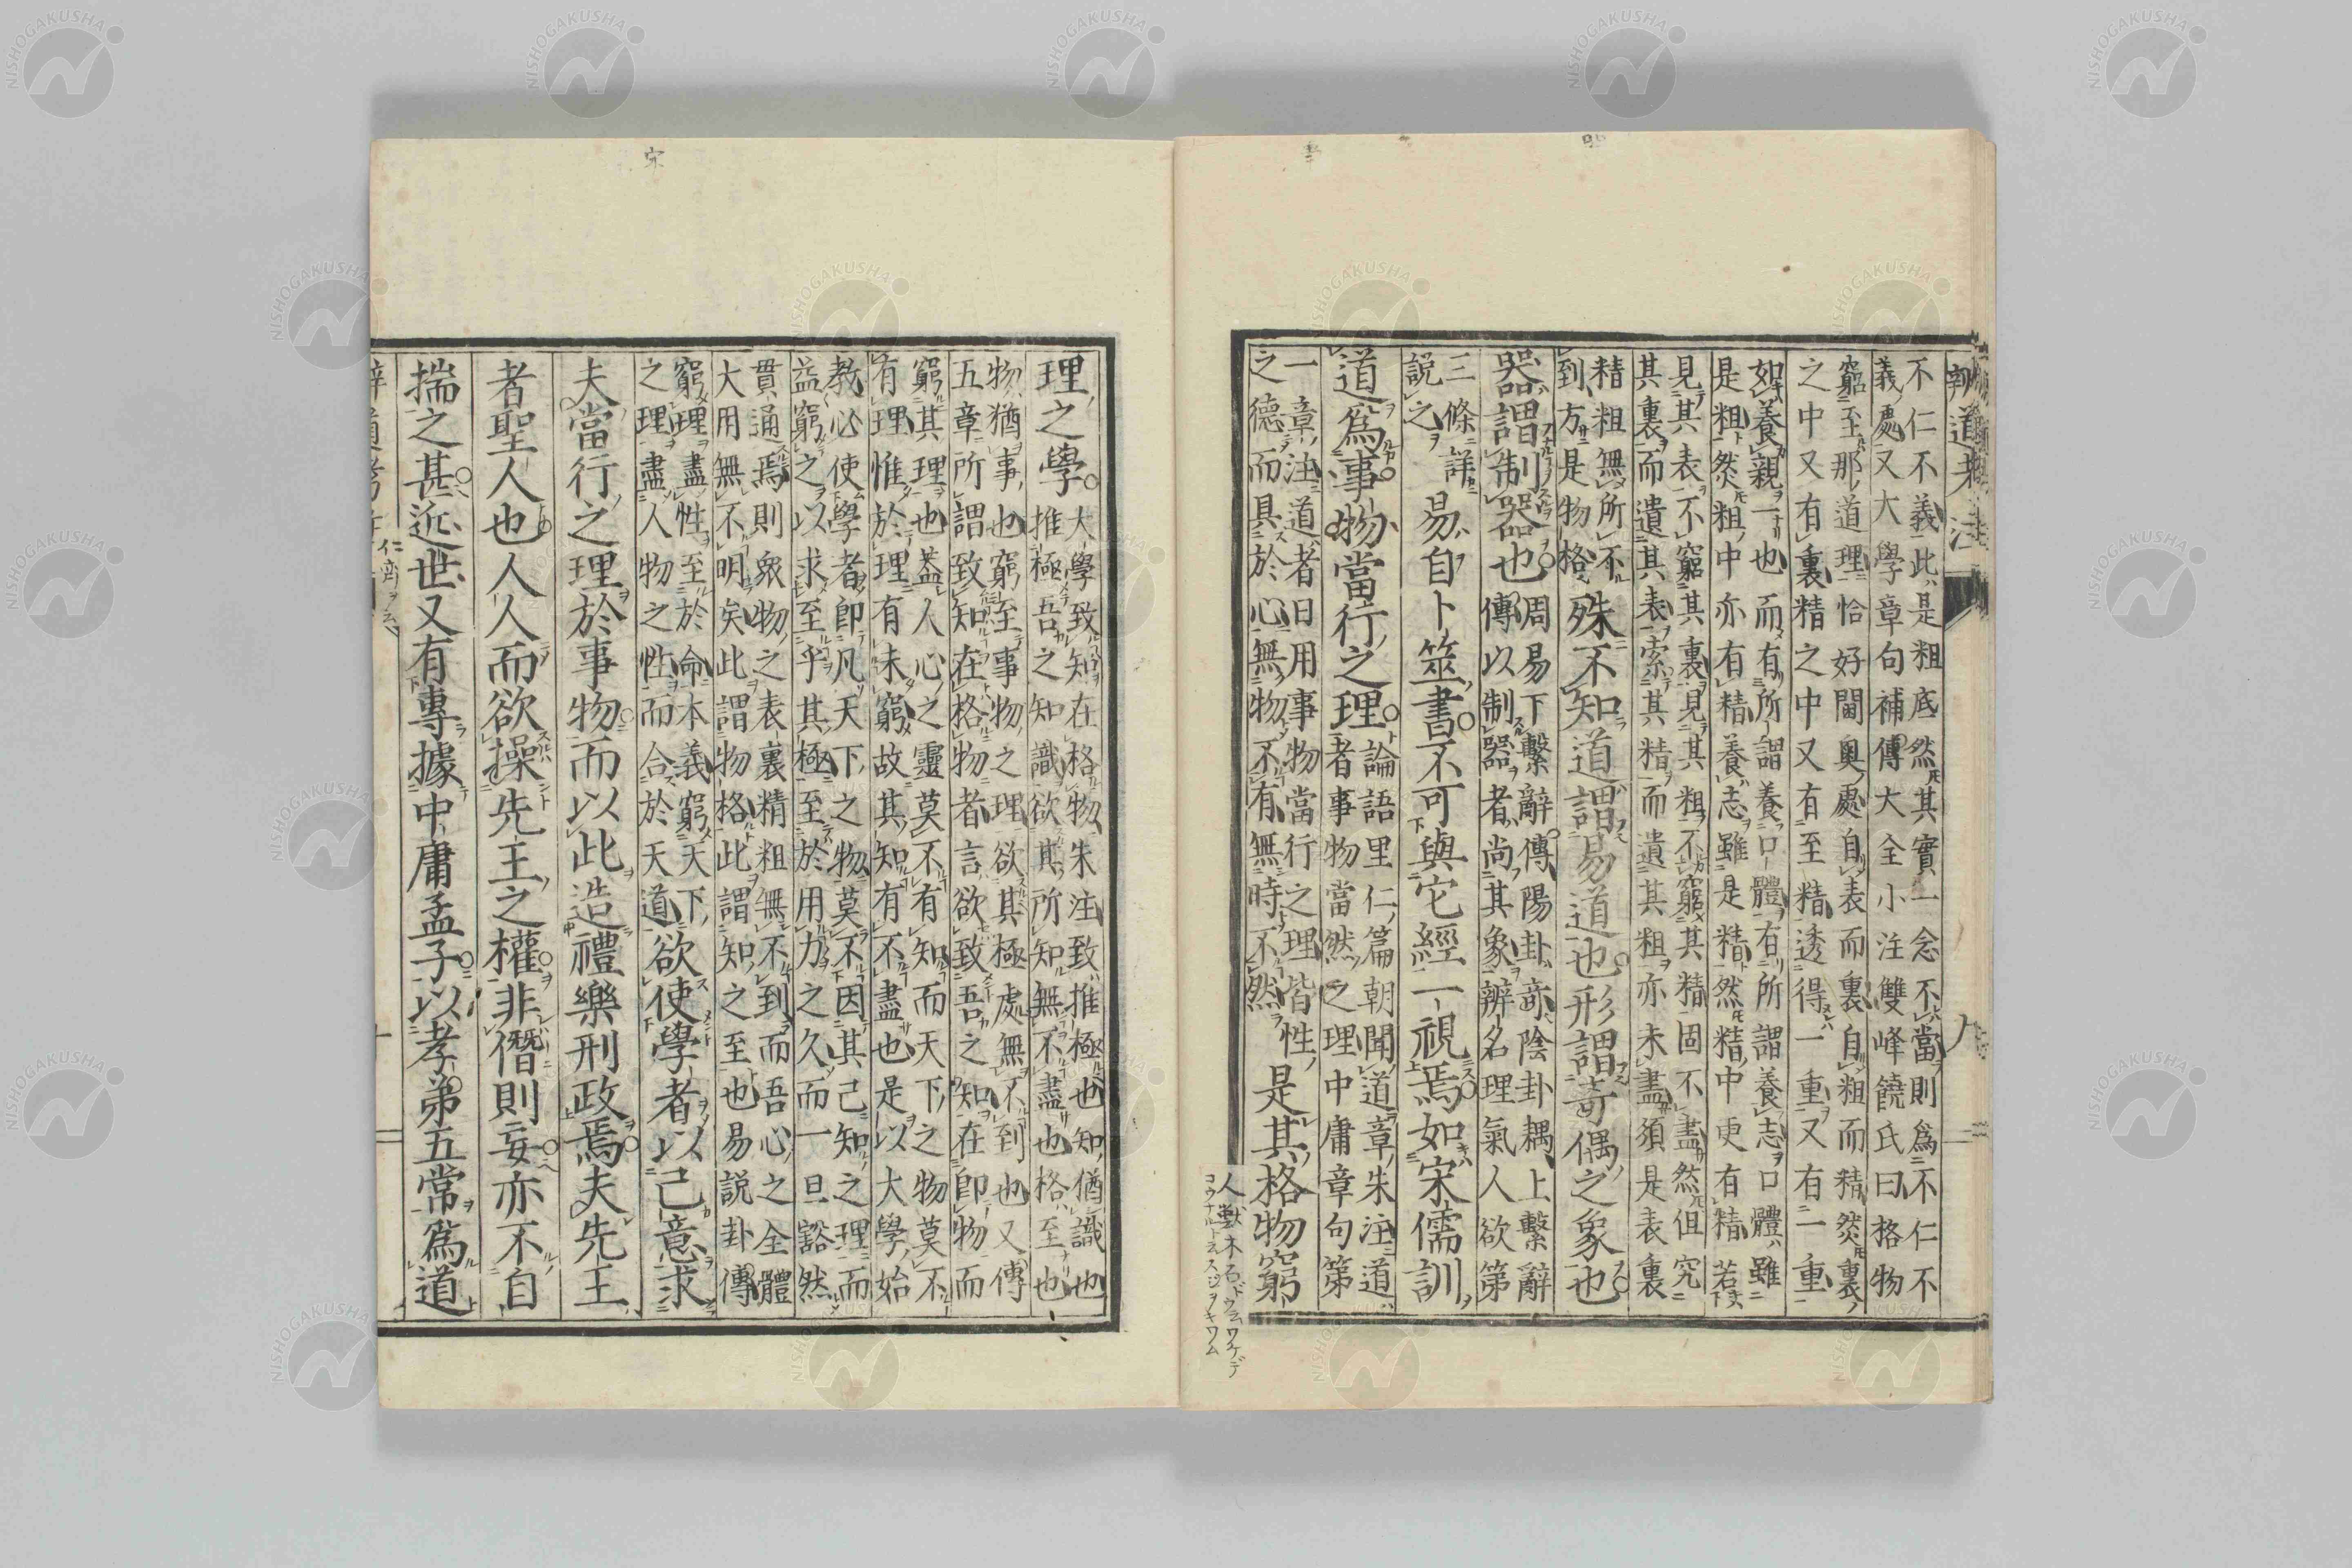 不仁不義此是粗底然其實一念不當則爲不仁不
義處又大學章句補傳大全小注雙峰饒氏曰格物
窮至那道理恰好閫奥處自表而裏自粗而精然裏
之中又有裏精之中又有至精透得一重又有一重
如養親一也而有所謂養口體有所謂養志口體雖
是粗然粗中亦有精養志雖是精然精中更有精若
見其表不窮其裏見其粗不窮其精固不盡然但究
其裏而遺其表索其精而遺其粗亦未盡須是表裏
精粗無所不
到方是物格
殊不知道謂易道也形謂竒偶之象也
器謂制器也
周易下繫辭傳陽卦竒陰卦耦上繫辭
傳以制器者尚其象辨名理氣人欲第
三條詳
説之
易自卜筮書不可與它經一視焉如宋儒訓
道爲事物當行之理
論語里仁篇朝聞道章朱注道
者事物當然之理中庸章句第
一章注道者日用事物當行之理皆性
之德而具於心無物不有無時不然
是其格物窮
理之學
大學致知在格物朱注致推極也知猶識也
推極吾之知識欲其所知無不盡也格至也
物猶事也窮至事物之理欲其極處無不到也又傳
五章所謂致知在格物者言欲致吾之知在即物而
窮其理也蓋人心之靈莫不有知而天下之物莫不
有理惟於理有未窮故其知有不盡也是以大學始
教必使學者即凡天下之物莫不因其已知之理而
益窮之以求至乎其極至於用力之久而一旦豁然
貫通焉則衆物之表裏精粗無不到而吾心之全體
大用無不明矣此謂物格此謂知之至也易説卦傳
窮理盡性至於命本義窮天下
之理盡人物之性而合於天道
欲使學者以己意求
夫當行之理於事物而以此造禮樂刑政焉夫先王
者聖人也人人而欲操先王之權非僭則妄亦不自
揣之甚近世又有專據中庸孟子以孝弟五常爲道
仁齋ヲ云
宋
NISHOGAKUSHA